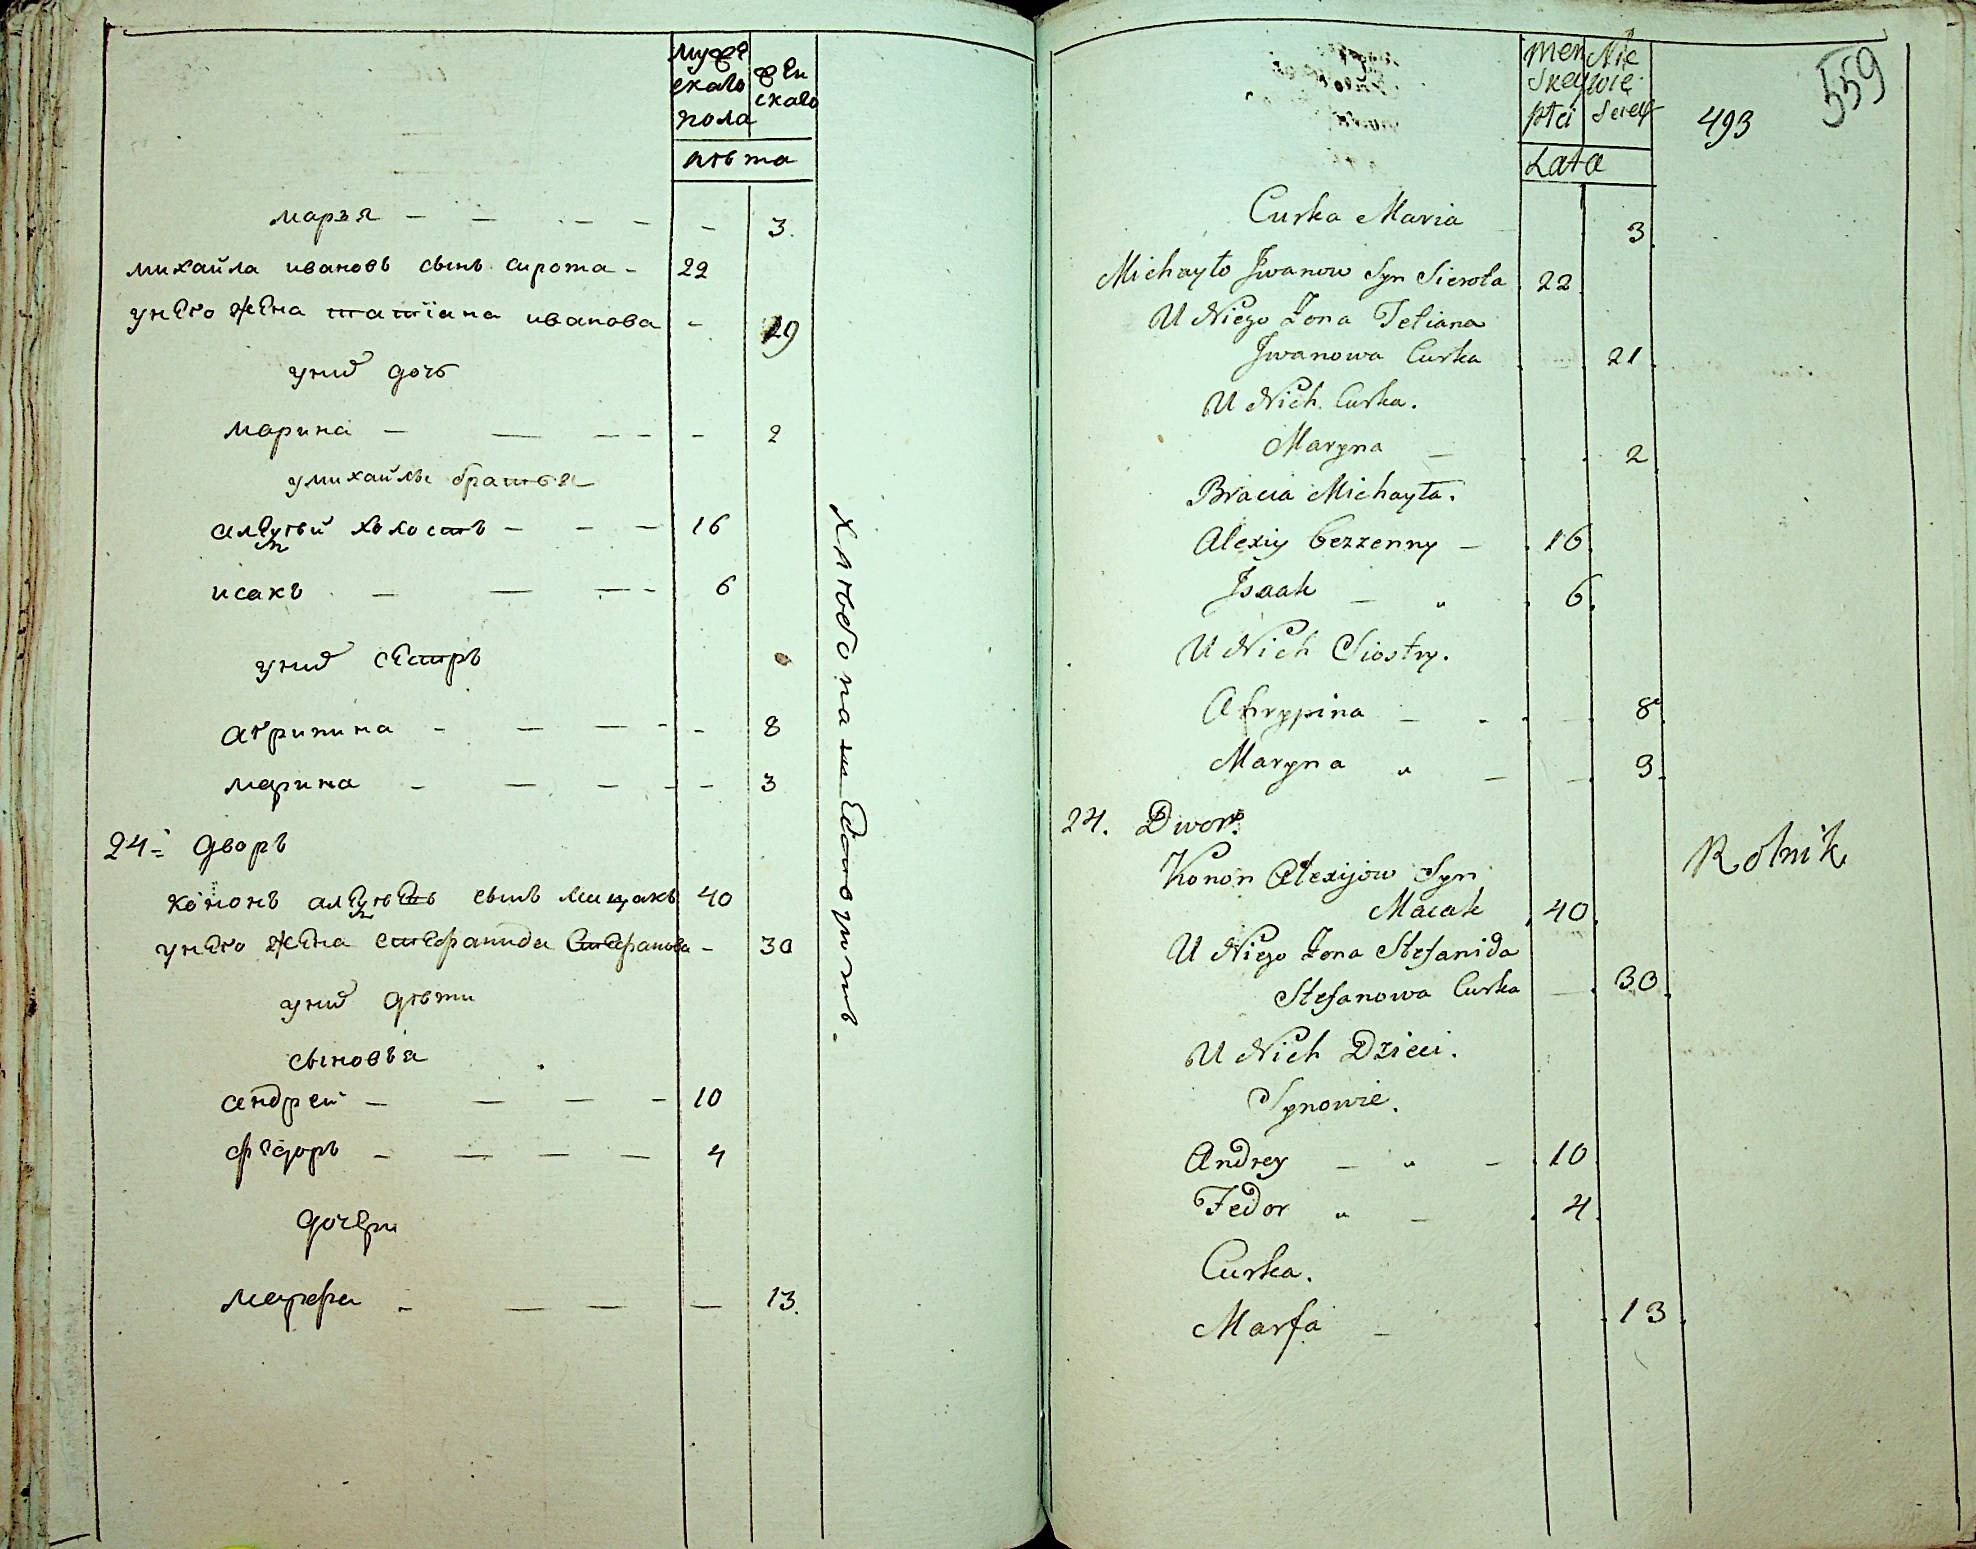 мужескаго пола
женскаго
лѣта
марья — — — — — 3.
михайла ивановъ сынъ сирота - 22
унего жена татіана иванова - 19
уних дочь
марина — — — - - 2
умихайлы братья
алеѯѣй холостъ - — — 16
исакъ — — — - 6
уних сестръ
агрипина - — — - - 8
марина - — — - - 3
24= дворъ
кононъ алеѯѣевъ сынъ мацакъ 40
унего жена стефанида стефанова - 30
уних дѣти
сыновья
андрей — — — — 10
федоръ — — — — 4
дочери
марфа - — — — 13.
хлѣбопашествуютъ.
Męskey płci
Niewiesciey
Lata
493
559
Curka Maria 3
Michayło Jwanow Syn Sierota 22
U Niego Zona Tetiana
Jwanowa Curka 21
U Nich Curka.
Maryna — 2
Bracia Michayła.
Alexiy bezzenny — 16
Jsaak — „ 6
U Nich Siostry.
Ahryppina — - - — 8
Maryna „ — — 3
24. Dwor.
Rolnik
Konon Alexijow Syn
Macak 40
U Niego Zona Stefanida
Stefanowa Curka — 30
U Nich Dzieci.
Synowie.
Andrey — „ — 10
Fedor „ — 4
Curka.
Marfa — 13